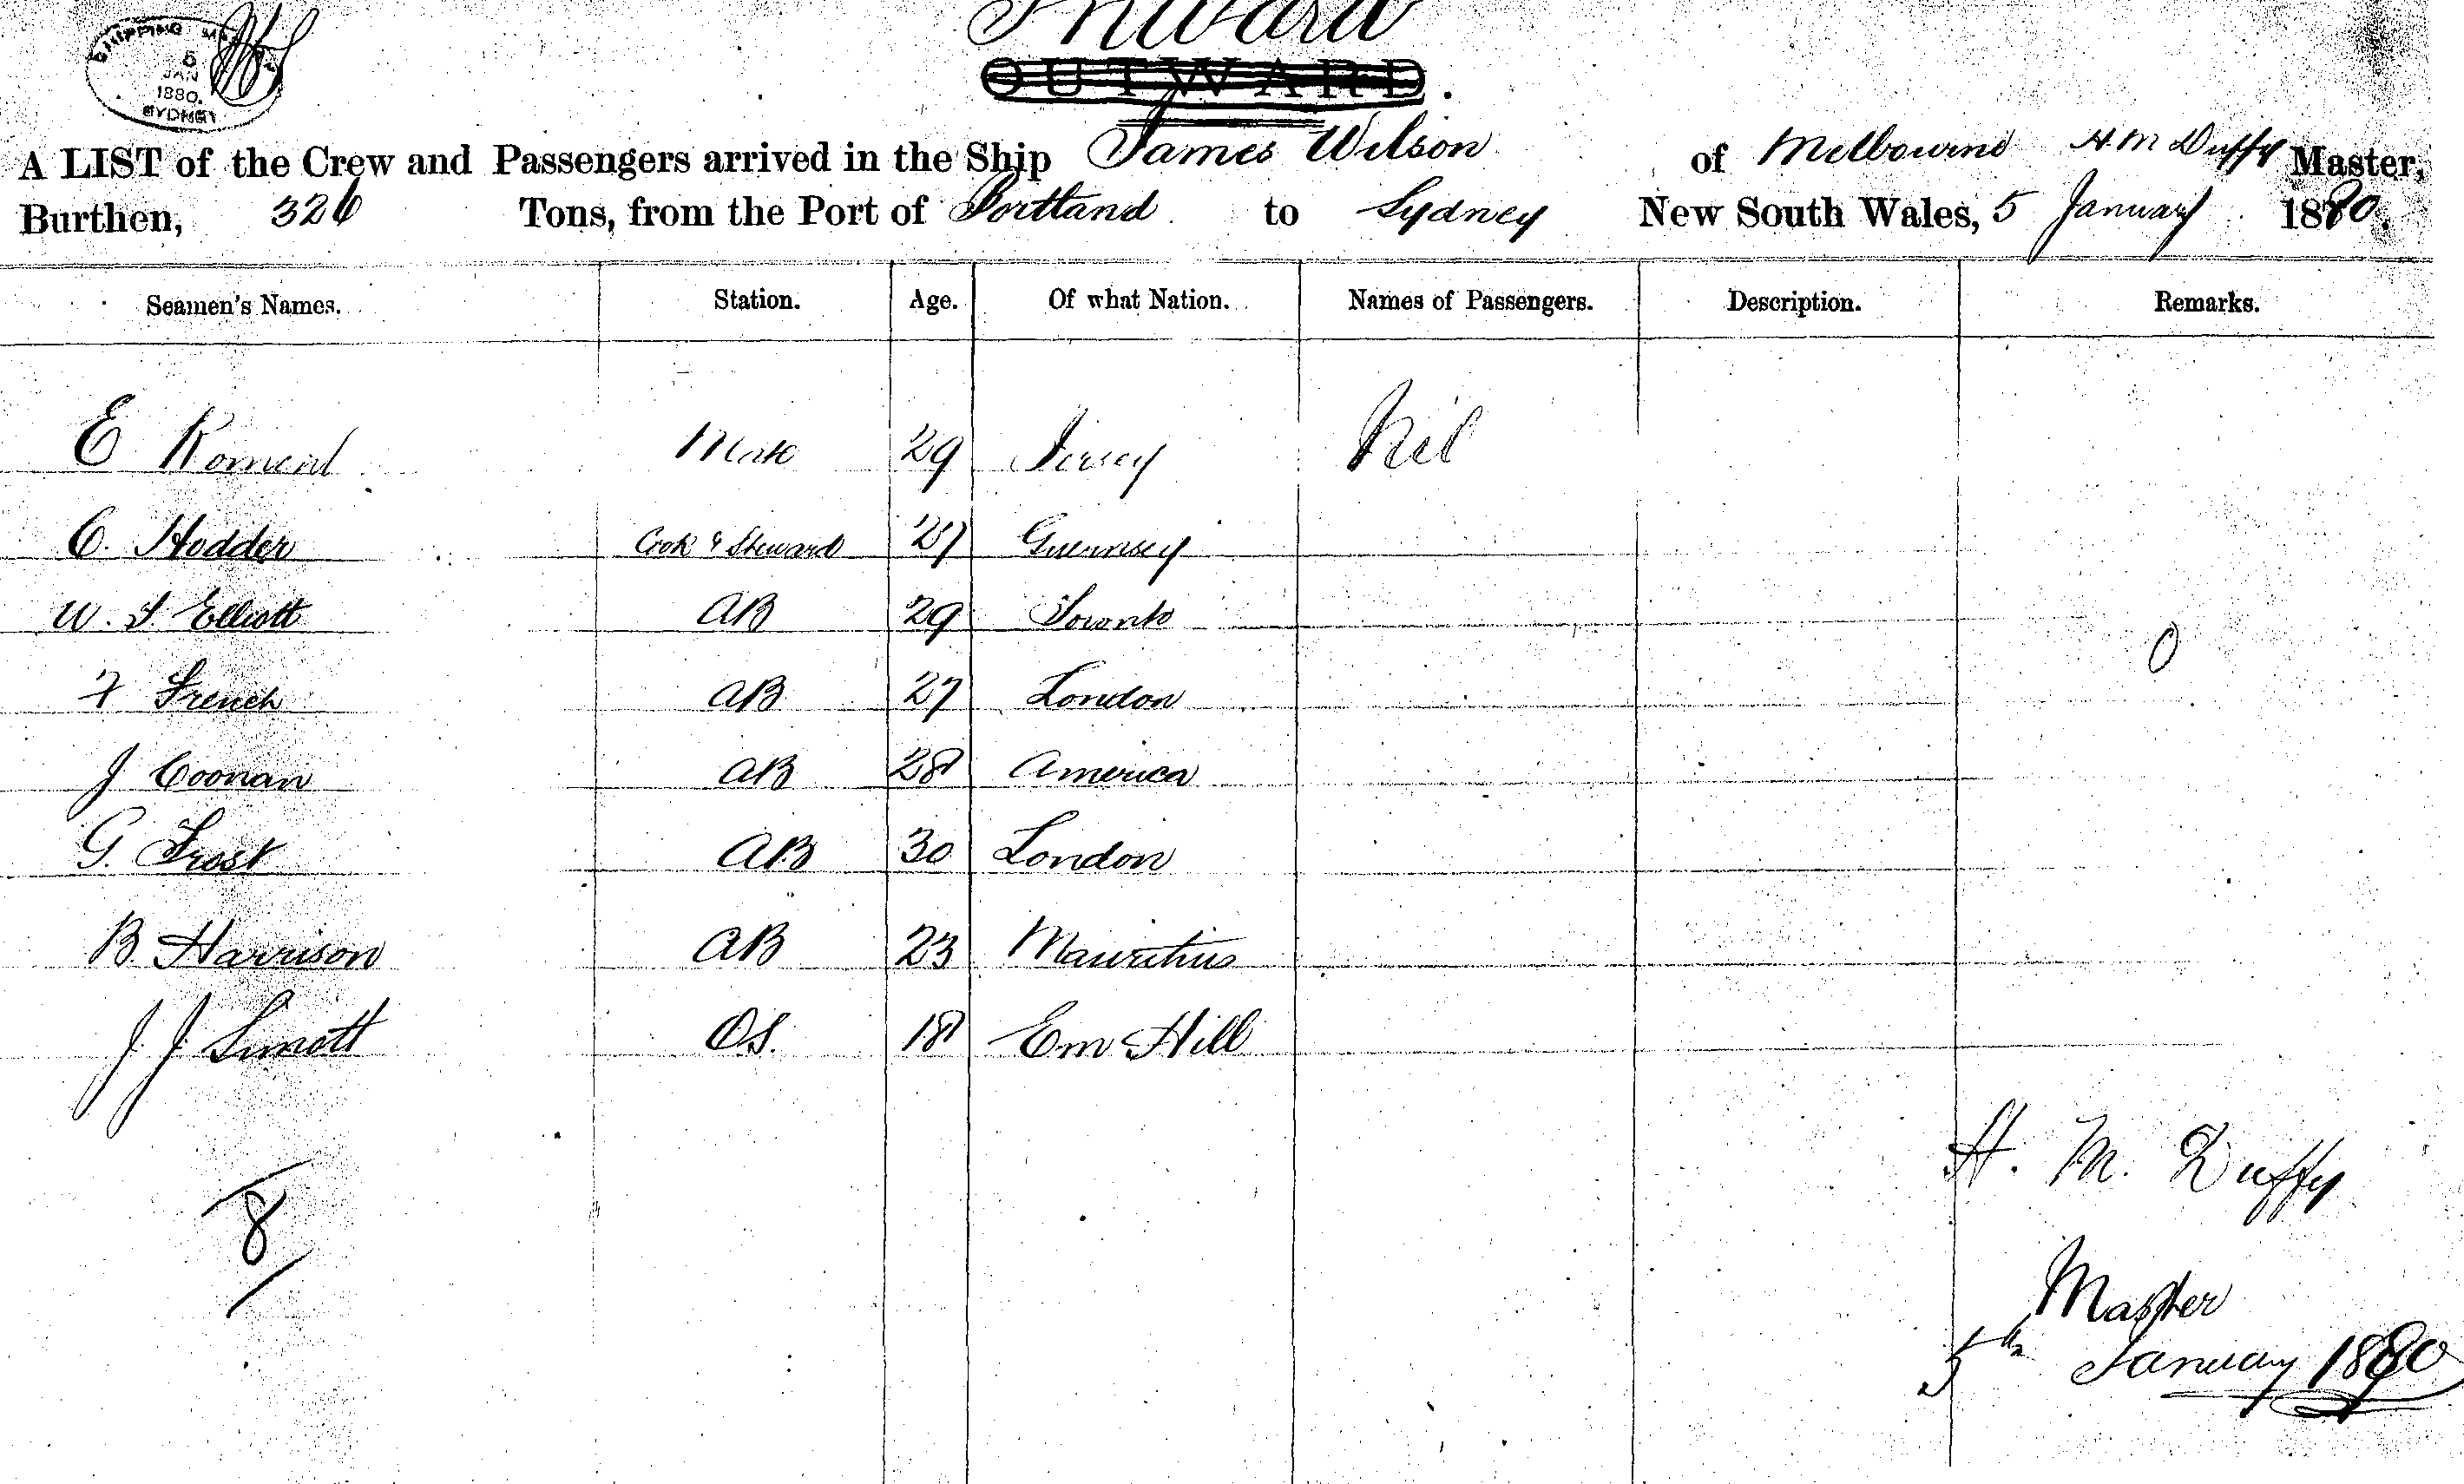 SHIPPING MASTER
5
JAN
1880.
SYDNEY
Inward
OUTWARD.
A LIST of the Crew and Passengers arrived in the Ship James Wilson of Melbourne H. M Duffy Master,
Burthen, 326 Tons, from the Port of Portland to Sydney New South Wales, 5 January 1880.
Seamen's Names. Station. Age. Of what Nation. Names of Passengers. Description. Remarks.
E Mate 29 Jersey Nil
C. Hodder Cook & Steward 27 Guernsey
W. Elliott AB 29 Toronto
French AB 27 London
J Coonan AB 28 America
G. Frost AB 30 London
B. Harrison AB 23 Mauritius
J. J. OS. 18 Em Hill
8
H. M. Duffy
Master
5th January 1880